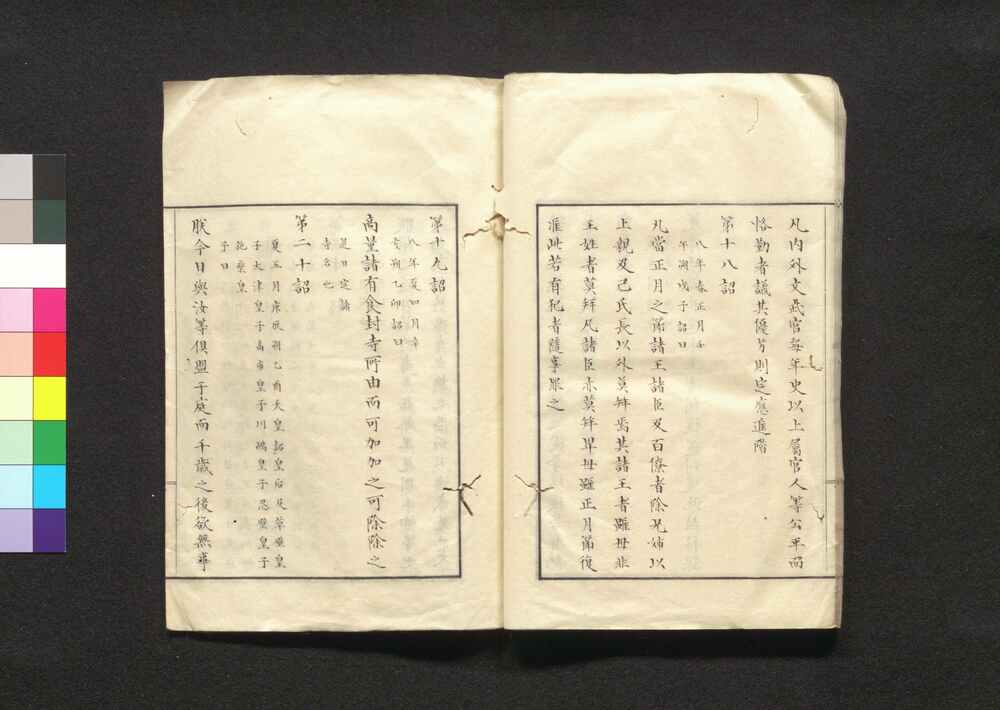 凡内外文武官毎年史以上属官人等公平而
恪勤者議其優劣則定應進階
第十八詔
八年春正月壬
午朔戊子詔曰
凡當正月之節諸王諸臣及百僚者除兄姉以
上親及己氏長以外莫拜焉其諸王者雖母非
王姓者莫拜凡諸臣亦莫拜卑母雖正月節復
准此若有犯者隨事罪之
第十九詔
八年夏四月辛
亥朔乙卯詔曰
商量諸有食封寺所由而可加加之可除除之
是日定諸
寺名也
第二十詔
夏五月庚辰朔乙酉天皇詔皇后及草壁皇
子大津皇子高市皇子川嶋皇子忍壁皇子
芝壁皇
子曰
朕今日與汝等倶盟于庭而千歳之後欲無事